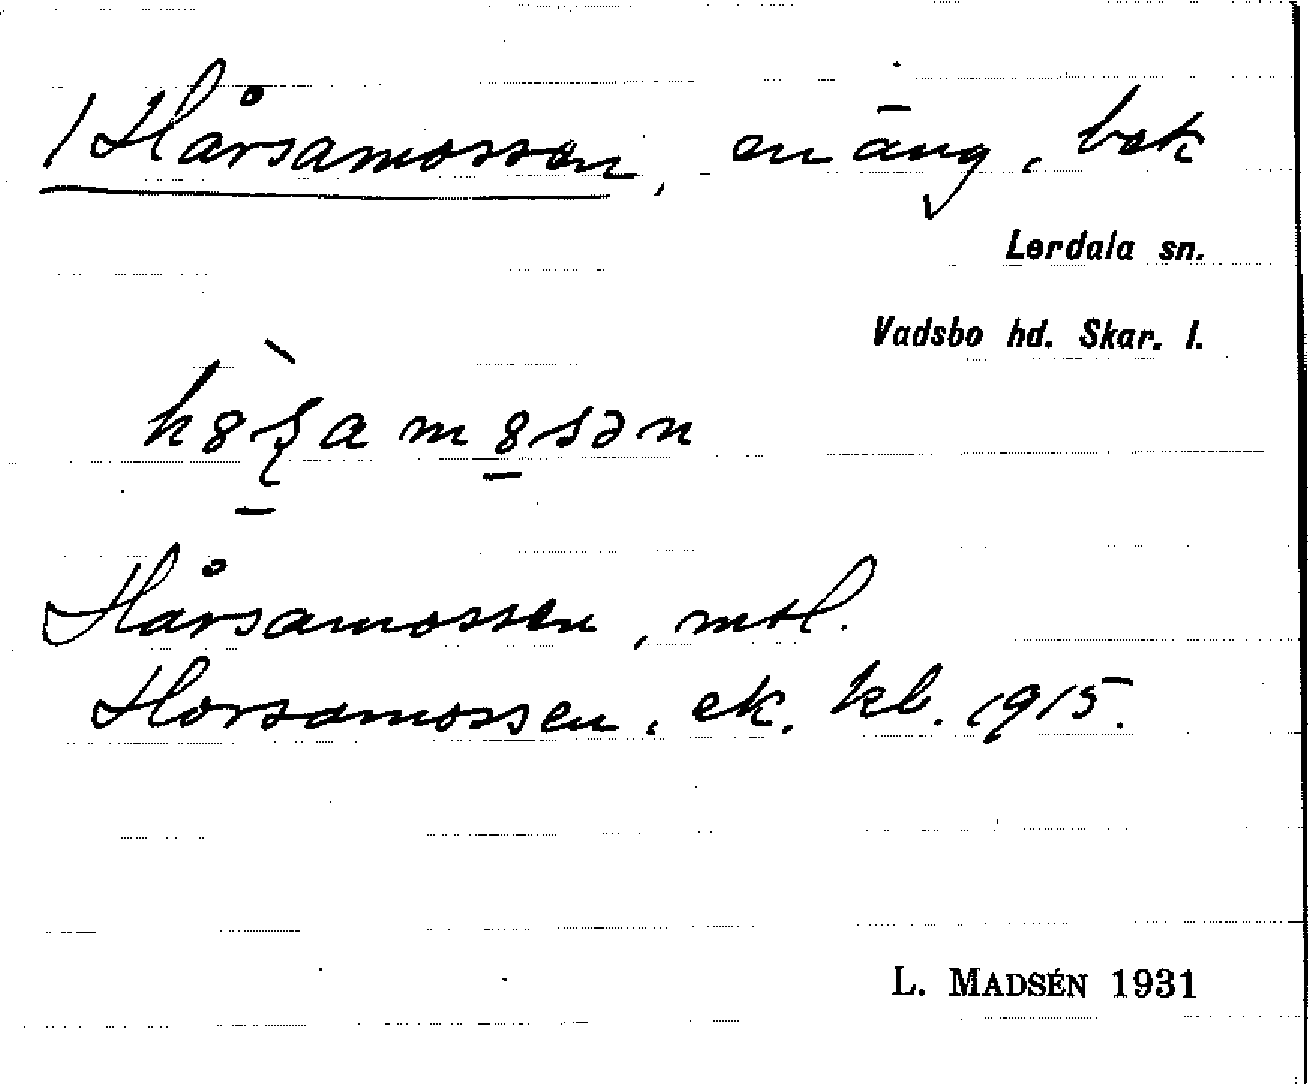 / Hårsamossen, en äng, bek
Lerdala sn.
Vadsbo hd. Skar. l.
Hårsamossen, mtl.
Horsamossen, ek. kb. 1915.
L. MADSÉN 1931